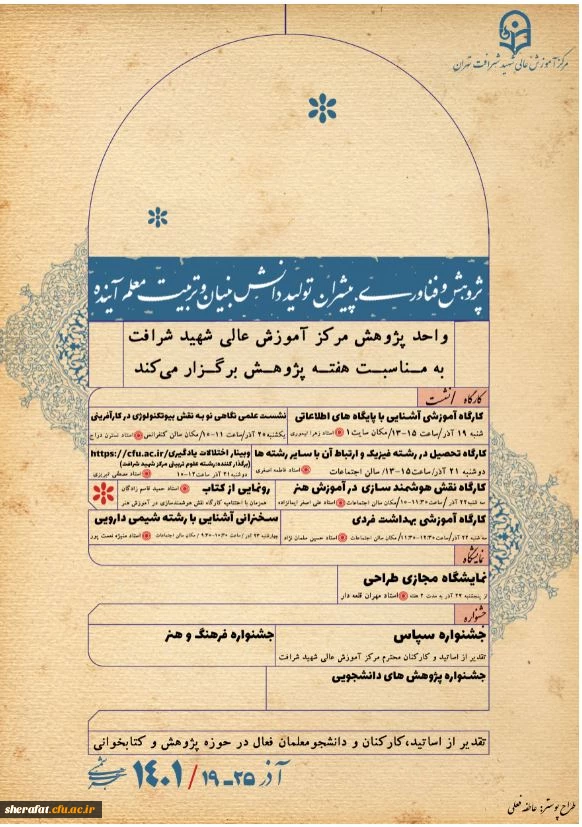 مرکز آموزش عالی شهید شرافت تهران
پژوهش و فناوری، پیشران تولید دانش بنیان و تربیت معلم آینده
واحد پژوهش مرکز آموزش عالی شهید شرافت
به مناسبت هفته پژوهش برگزار می‌کند
کارگاه / نشست
کارگاه آموزشی آشنایی با پایگاه های اطلاعاتی
شنبه ۱۹ آذر/ساعت ۱۵-۱۳/مکان سایت ۱ استاد زهرا تیموری
نشست علمی نگاهی نو به نقش بیوتکنولوژی در کارآفرینی
یکشنبه ۲۰ آذر/ساعت ۱۱-۱۰/مکان سالن کنفرانس استاد نسترن دراج
کارگاه تحصیل در رشته فیزیک و ارتباط آن با سایر رشته ها
دوشنبه ۲۱ آذر/ساعت ۱۵-۱۳/ سالن اجتماعات استاد فاطمه اصغری
وبینار اختلالات یادگیری/https://cfu.ac.ir
(برگذار کننده: رشته علوم تربیتی مرکز شهید شرافت)
دوشنبه ۲۱ آذر ساعت ۱۲-۱۰ استاد مصطفی تبریزی
کارگاه نقش هوشمند سازی در آموزش هنر
سه شنبه ۲۲ آذر /ساعت ۱۱:۳۰-۱۰/مکان سالن اجتماعات استاد علی اصغر ایمانزاده
رونمایی از کتاب استاد حمید قاسم زادگان
همزمان با اختتامیه کارگاه نقش هوشمندسازی در آموزش هنر
کارگاه آموزشی بهداشت فردی
سه شنبه ۲۲ آذر/ساعت ۱۲:۳۰-۱۱:۳۰/مکان سالن اجتماعات استاد حسین سلمان نژاد
سخنرانی آشنایی با رشته شیمی دارویی
چهارشنبه ۲۳ آذر / ساعت ۱۰:۳۰-۹:۳۰ / مکان سالن اجتماعات استاد منیژه نعمت پور
نمایشگاه
نمایشگاه مجازی طراحی
از پنجشنبه ۲۴ آذر به مدت ۲ هفته استاد مهران قلعه دار
جشنواره
جشنواره سپاس
تقدیر از اساتید و کارکنان محترم مرکز آموزش عالی شهید شرافت
جشنواره فرهنگ و هنر
جشنواره پژوهش های دانشجویی
تقدیر از اساتید،کارکنان و دانشجومعلمان فعال در حوزه پژوهش و کتابخوانی
آذر ۲۵-۱۹ / ۱۴۰۱
طراح پوستر: عاطفه فعلی
sherafat.cfu.ac.ir